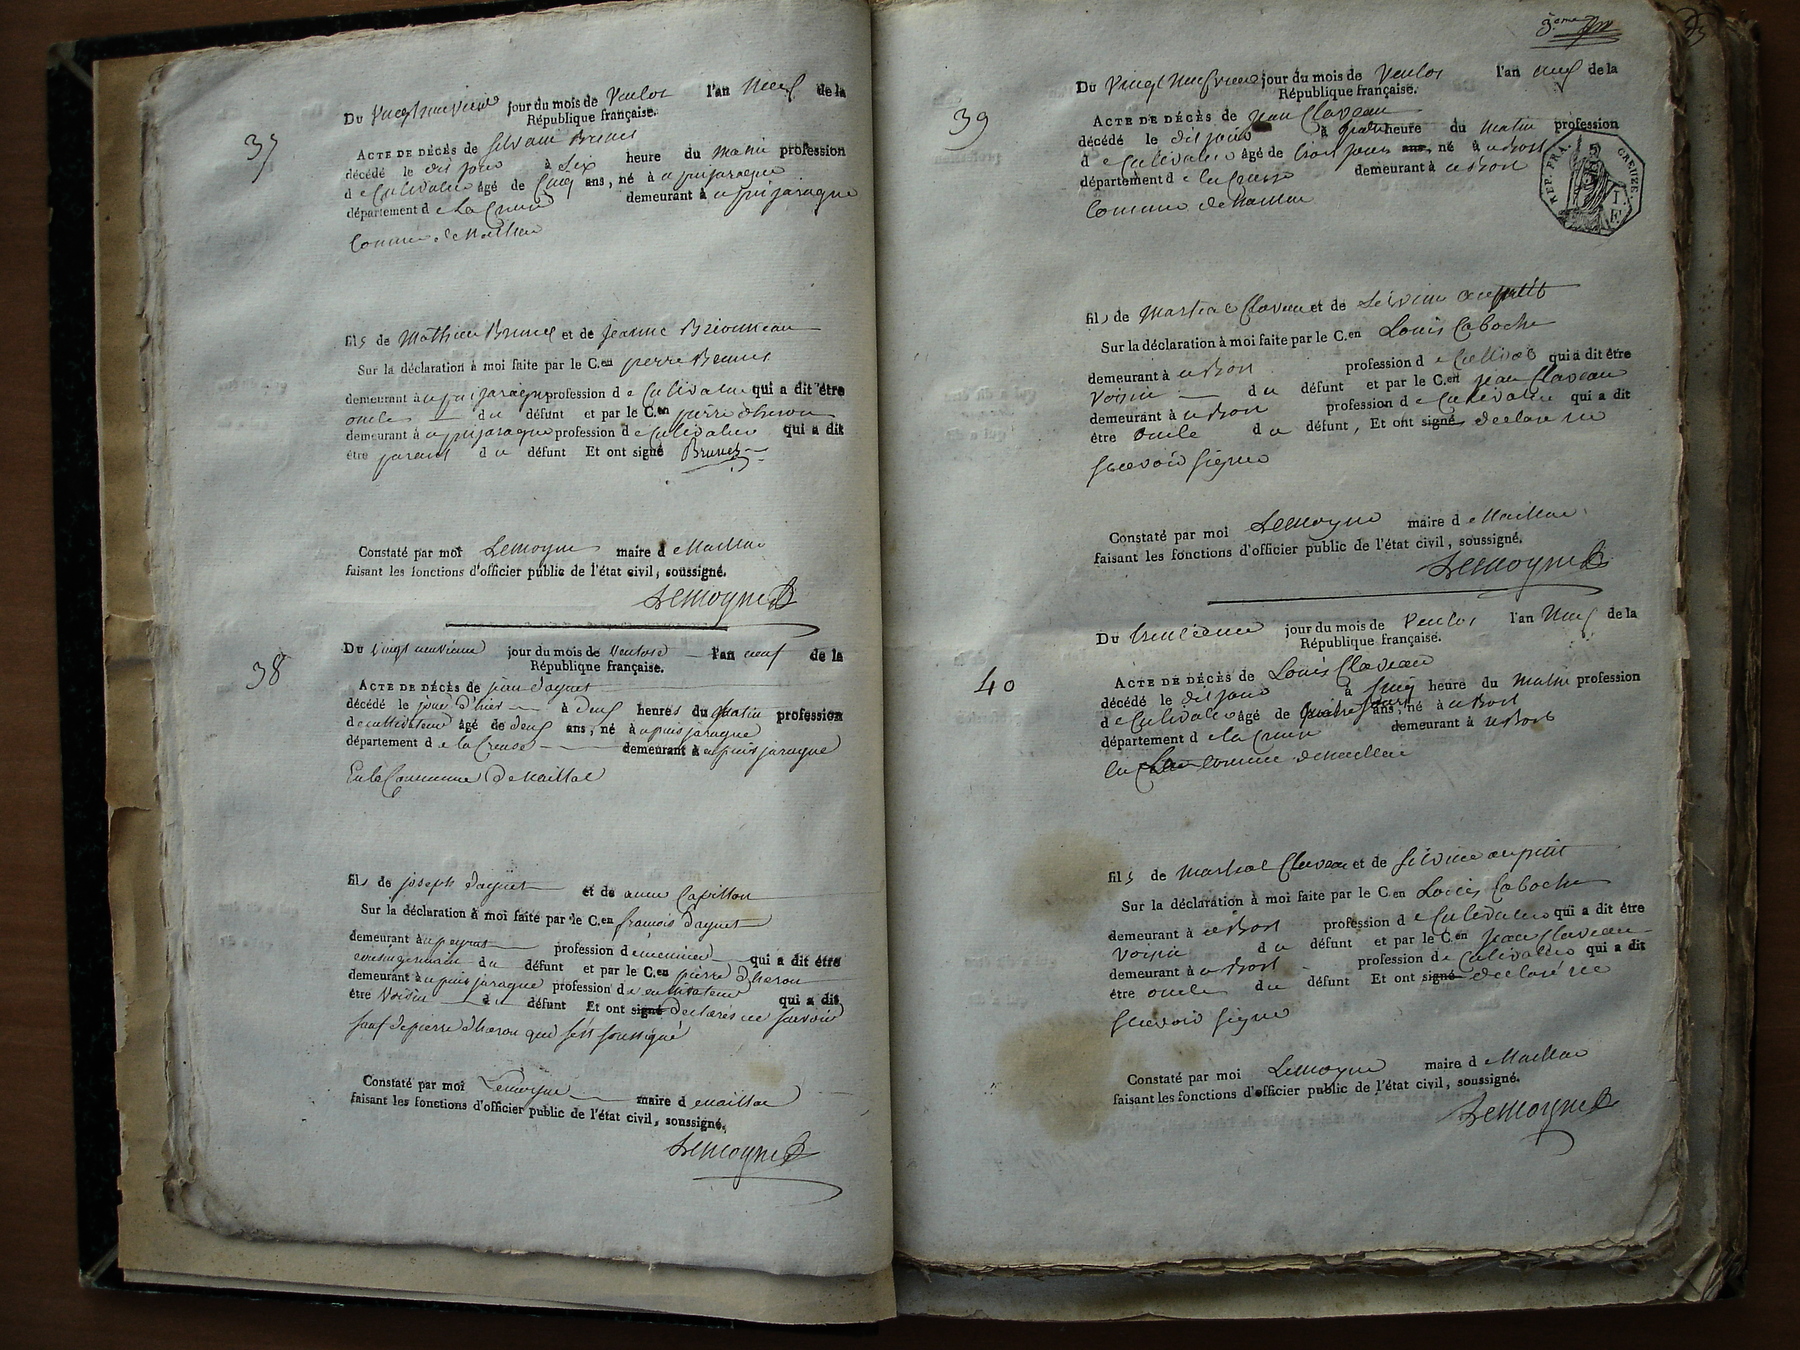 37
Du Vingt neuvieme jour du mois de Ventos l'an Neuf de la
République française.
ACTE DE DÉCÈS de Silvain Brunet
décédé le dit jour à Six heure du matin profession
d e Cultivateur âgé de Cinq ans, né à upuijaragne
département d e La Creuse demeurant à upuijaragne
Commune de Maillac
fils de Mathieu Brunet et de jeanne
Sur la déclaration à moi faite par le C.en pierre Brunet
demeurant à upuijaragne profession d e Cultivateur qui a dit être
oncle du défunt et par le C.en pierre dheron
demeurant à upuijaragne profession d e Cultivateur qui a dit
être parent du défunt Et ont signé Brunet
Constaté par moi Lemoyne maire d e Maillac
faisant les fonctions d'officier public de l'état civil, soussigné.
Lemoyne
38
Du vingt neuvieme jour du mois de Ventose l'an neuf de la
République française.
ACTE DE DÉCÈS de jean daguet
décédé le jour d'hier à deux heures du Matin profession
de cultivateur âgé de deux ans, né à upuisjaragne
département d e la Creuse demeurant à upuisjaragne
En la Commune de Maillac
fils de joseph daguet et de anne
Sur la déclaration à moi faite par le C.en francois daguet
demeurant à upeyrat profession de qui a dit être
cousin germain du défunt et par le C.en pierre dheron
demeurant à upuisjaragne profession de cultivateur qui a dit
être Voisin du défunt Et ont signé declares ne Scavoir
sauf le pierre dheron qui s'est soussigné
Constaté par moi Lemoyne maire d e Maillac
faisant les fonctions d'officier public de l'état civil, soussigné.
Lemoyne
3eme
39
Du Vingt Neuvieme jour du mois de Ventos l'an neuf de la
République française.
ACTE DE DÉCÈS de jean Claveau
décédé le dit jour à quatre heure du matin profession
d e Cultivateur âgé de trois jours ans, né à u Bost
département d e la Creuse demeurant à u Bost
Commune de Maillac
REP. FRA. CREUZE
fils de Martial Claveau et de Silvine aupetit
Sur la déclaration à moi faite par le C.en Louis Caboche
demeurant à u Bost profession d e Cultivat qui a dit être
Voisin du défunt et par le C.en jean Claveau
demeurant à u Bost profession d e Cultivateur qui a dit
être oncle du défunt, Et ont signé declare ne
Scavoir Signer
Constaté par moi Lemoyne maire d e Maillac
faisant les fonctions d'officier public de l'état civil, soussigné.
Lemoyne
40
Du trentieme jour du mois de Ventos l'an Neuf de la
République française.
ACTE DE DÉCÈS de Louis Claveau
décédé le dit jour à Cinq heure du matin profession
d e Cultivateur âgé de quatre jours ans, né à u Bost
département d e la Creuse demeurant à u Bost
en commune de Maillac
fils de Martial Claveau et de Silvine aupetit
Sur la déclaration à moi faite par le C.en Louis Caboche
demeurant à u Bost profession d e Cultivateur qui a dit être
Voisin du défunt et par le C.en jean Claveau
demeurant à u Bost profession d e Cultivateur qui a dit
être oncle du défunt Et ont signé declaré ne
Scavoir Signer
Constaté par moi Lemoyne maire d e Maillac
faisant les fonctions d'officier public de l'état civil, soussigné.
Lemoyne